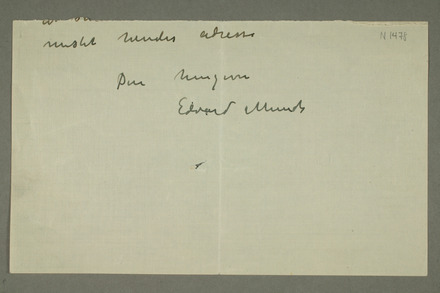 mistet hendes adresse
Din hengivne
Edvard Munch
N 1478